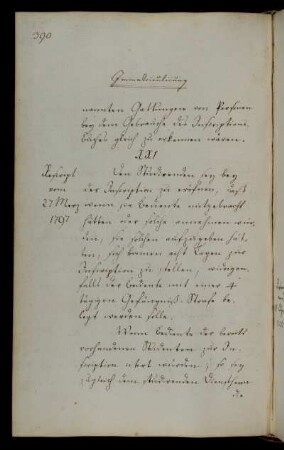 390
nannten Gattungen von Personen
bey dem Gebrauche des Inscriptions
buches gleich zu erkennen wären.
XXI
Rescript
vom
27 März
1797
Den Studirenden sey bey
der Inscription zu eröffnen, daß
wenn sie Bediente mitgebracht
hätten oder solche annehmen wür
den, sie solchen aufzugeben hät
ten, sich binnen acht Tagen zur
Inscription zu stellen, widrigen
falls der Bediente mit einer 4
tägigen Gefängniß Strafe be
legt werden solle.
Wenn Bediente der bereits
vorhandenen Studenten zur In
scription citirt würden; so sey
zugleich dem studirenden Dienstherrn